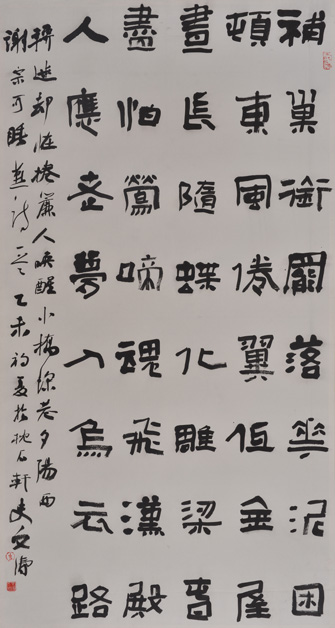 補巢銜罷落華泥困
頓東風倦翼低金屋
晝長隨蝶化雕梁春
盡怕鶯啼魂飛漢殿
人應老夢入烏衣路
轉迷却怪捲簾人喚醒小橋深巷夕陽西
謝宗可睡燕詩一首乙未初夏於枕石軒